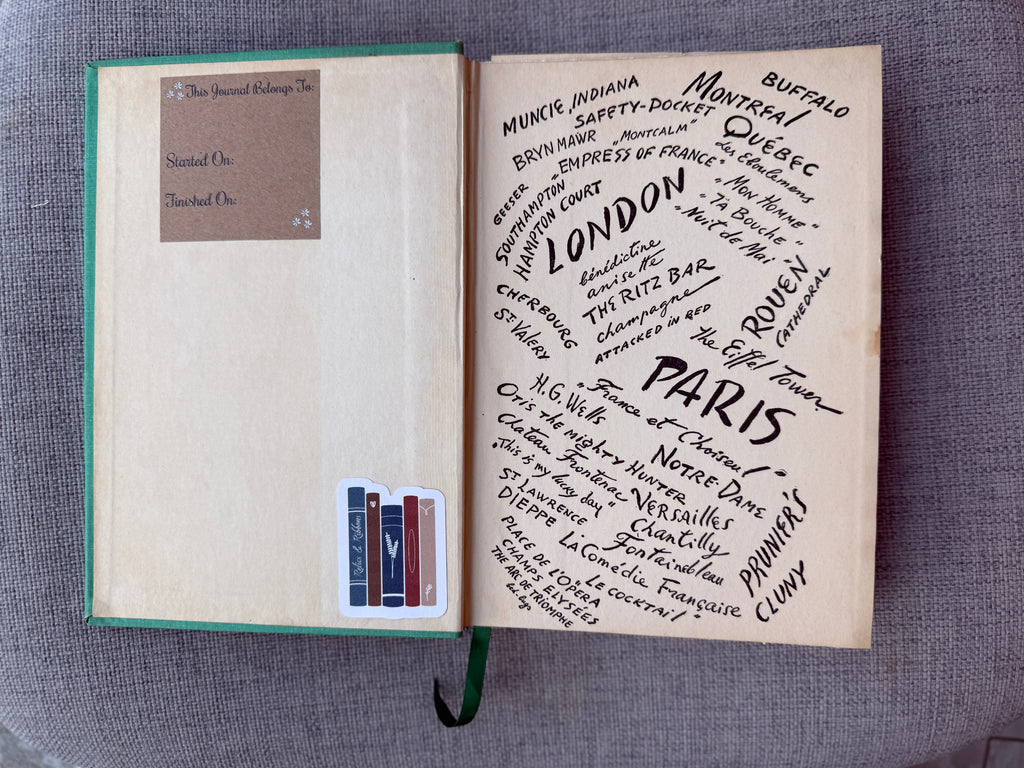 This Journal Belongs To:
Started On:
Finished On:
Relics & Ribbons
MUNCIE, INDIANA
SAFETY-POCKET
MONTREAL
BUFFALO
BRYN MAWR
"MONTCALM"
QUÉBEC
"EMPRESS OF FRANCE"
Les Eboulements
GEESER
SOUTHAMPTON
HAMPTON COURT
LONDON
"MON HOMME"
"TA BOUCHE"
"NUIT de Mai
bénédictine
anisette
THE RITZ BAR
champagne
ATTACKED IN RED
ROUEN
CATHEDRAL
CHERBOURG
ST. VALERY
the Eiffel Tower
PARIS
H.G. WELLS
"France et Choiseul"
OTIS THE MIGHTY HUNTER
NOTRE DAME
Chateau Frontenac
"This is my lucky day"
VERSAILLES
ST LAWRENCE
Chantilly
DIEPPE
Fontainebleau
PRUNIER'S
CLUNY
LA Comédie Française
PLACE DE L'OPERA
"LE COCKTAIL"
CHAMPS ELYSÉES
THE ARC DE TRIOMPHE